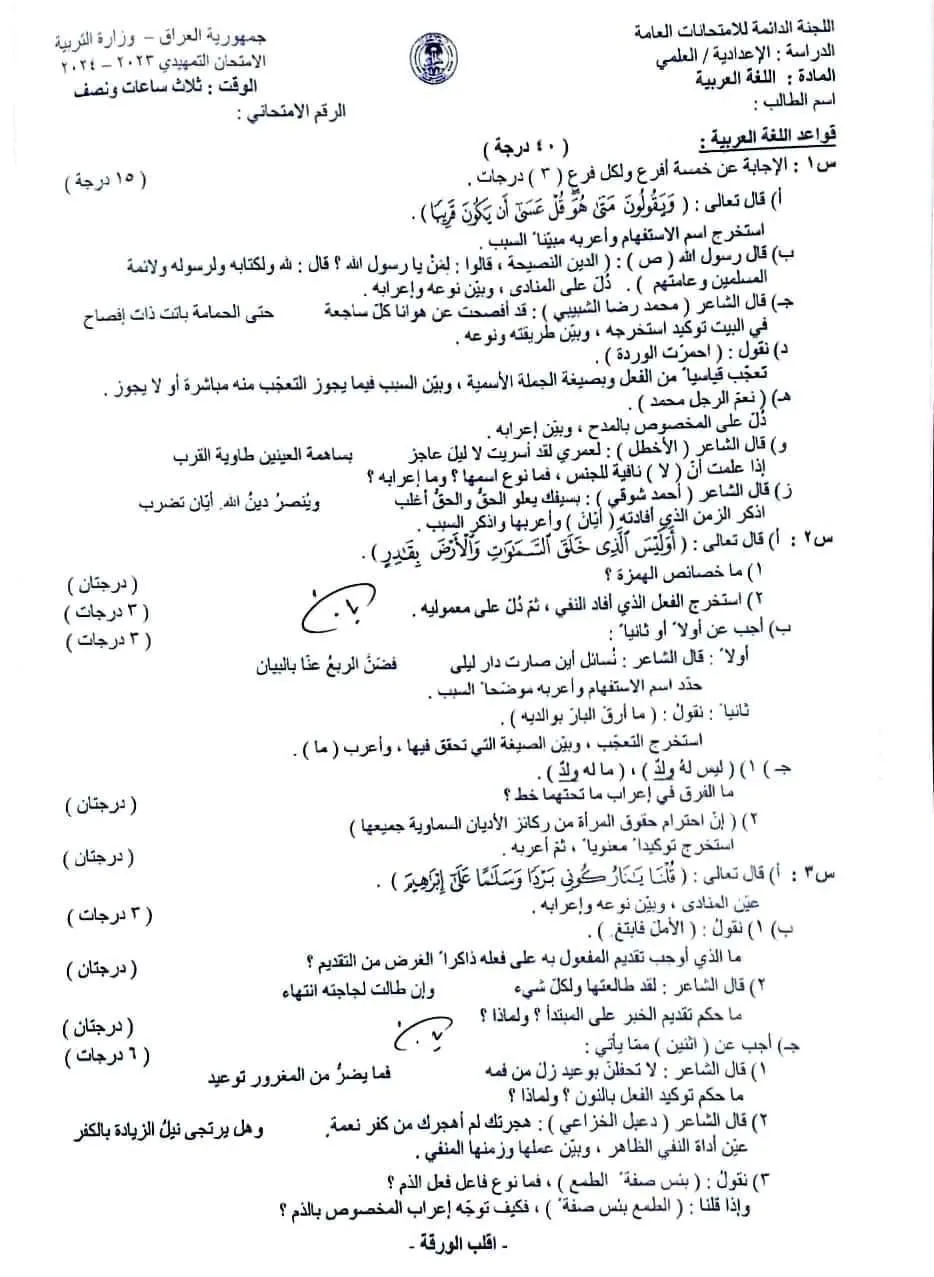 اللجنة الدائمة للامتحانات العامة
الدراسة : الإعدادية / العلمي
المادة : اللغة العربية
اسم الطالب :
جمهورية العراق - وزارة التربية
الامتحان التمهيدي ٢٠٢٣ - ٢٠٢٤
الوقت : ثلاث ساعات ونصف
الرقم الامتحاني :
قواعد اللغة العربية : ( ٤٠ درجة )
س١ : الإجابة عن خمسة أفرع ولكل فرع ( ٣ ) درجات . ( ١٥ درجة )
أ) قال تعالى : ( وَيَقُولُونَ مَتَىٰ هُوَ قُلْ عَسَىٰ أَن يَكُونَ قَرِيبًا ) .
استخرج اسم الاستفهام وأعربه مبيّناً السبب .
ب) قال رسول الله ( ص ) : ( الدين النصيحة ، قالوا : لِمَنْ يا رسول الله ؟ قال : لله ولكتابه ولرسوله ولائمة
المسلمين وعامتهم ) . دُلّ على المنادى ، وبيّن نوعه وإعرابه .
جـ) قال الشاعر ( محمد رضا الشبيبي ) : قد أفصحت عن هوانا كلّ ساجعة حتى الحمامة باتت ذات إفصاح
في البيت توكيد استخرجه ، وبيّن طريقته ونوعه .
د) نقول : ( احمرّت الوردة ) .
تعجّب قياسياً من الفعل وبصيغة الجملة الأسمية ، وبيّن السبب فيما يجوز التعجّب منه مباشرة أو لا يجوز .
هـ) ( نعمَ الرجل محمد ) .
دُلّ على المخصوص بالمدح ، وبيّن إعرابه .
و) قال الشاعر ( الأخطل ) : لعمري لقد أسريت لا ليلَ عاجز بساهمة العينين طاوية القرب
إذا علمت أنّ ( لا ) نافية للجنس ، فما نوع اسمها ؟ وما إعرابه ؟
ز) قال الشاعر ( أحمد شوقي ) : بسيفك يعلو الحقُّ والحقُّ أغلب ويُنصرُ دينُ الله أيّان تضرب
اذكر الزمن الذي أفادته ( أيّانَ ) وأعربها واذكر السبب .
س٢ : أ) قال تعالى : ( أَوَلَيْسَ الَّذِي خَلَقَ السَّمَاوَاتِ وَالْأَرْضَ بِقَادِرٍ ) .
١) ما خصائص الهمزة ؟ ( درجتان )
٢) استخرج الفعل الذي أفاد النفي ، ثمّ دُلّ على معموليه . ( ٣ درجات )
ب) أجب عن أولاً أو ثانياً : ( ٣ درجات )
أولاً : قال الشاعر : نُسائل أين صارت دار ليلى فضنَّ الربعُ عنّا بالبيان
حدّد اسم الاستفهام وأعربه موضّحاً السبب .
ثانياً : نقولُ : ( ما أرقّ البارّ بوالديه ) .
استخرج التعجّب ، وبيّن الصيغة التي تحقق فيها ، وأعرب ( ما ) .
جـ ) ١) ( ليس لهُ ولدٌ ) ، ( ما له ولدٌ ) .
ما الفرق في إعراب ما تحتهما خط ؟ ( درجتان )
٢) ( إنّ احترام حقوق المرأة من ركائز الأديان السماوية جميعها )
استخرج توكيداً معنوياً ، ثمّ أعربه . ( درجتان )
س٣ : أ) قال تعالى : ( قُلْنَا يَا نَارُ كُونِي بَرْدًا وَسَلَامًا عَلَىٰ إِبْرَاهِيمَ ) .
عيّن المنادى ، وبيّن نوعه وإعرابه . ( ٣ درجات )
ب) ١) نقولُ : ( الأملَ فابتغِ ) .
ما الذي أوجب تقديم المفعول به على فعله ذاكراً الغرض من التقديم ؟ ( درجتان )
٢) قال الشاعر : لقد طالعتها ولكلّ شيء وإن طالت لجاجته انتهاء
ما حكم تقديم الخبر على المبتدأ ؟ ولماذا ؟ ( درجتان )
جـ) أجب عن ( اثنين ) ممّا يأتي : ( ٦ درجات )
١) قال الشاعر : لا تحفلنّ بوعيد زلّ من فمه فما يضرُّ من المغرور توعيد
ما حكم توكيد الفعل بالنون ؟ ولماذا ؟
٢) قال الشاعر ( دعبل الخزاعي ) : هجرتك لم أهجرك من كفر نعمة وهل يرتجى نيلُ الزيادة بالكفر
عيّن أداة النفي الظاهر ، وبيّن عملها وزمنها المنفي .
٣) نقولُ : ( بئس صفةً الطمع ) ، فما نوع فاعل فعل الذم ؟
وإذا قلنا : ( الطمع بئس صفةً ) ، فكيف توجّه إعراب المخصوص بالذم ؟
- اقلب الورقة -